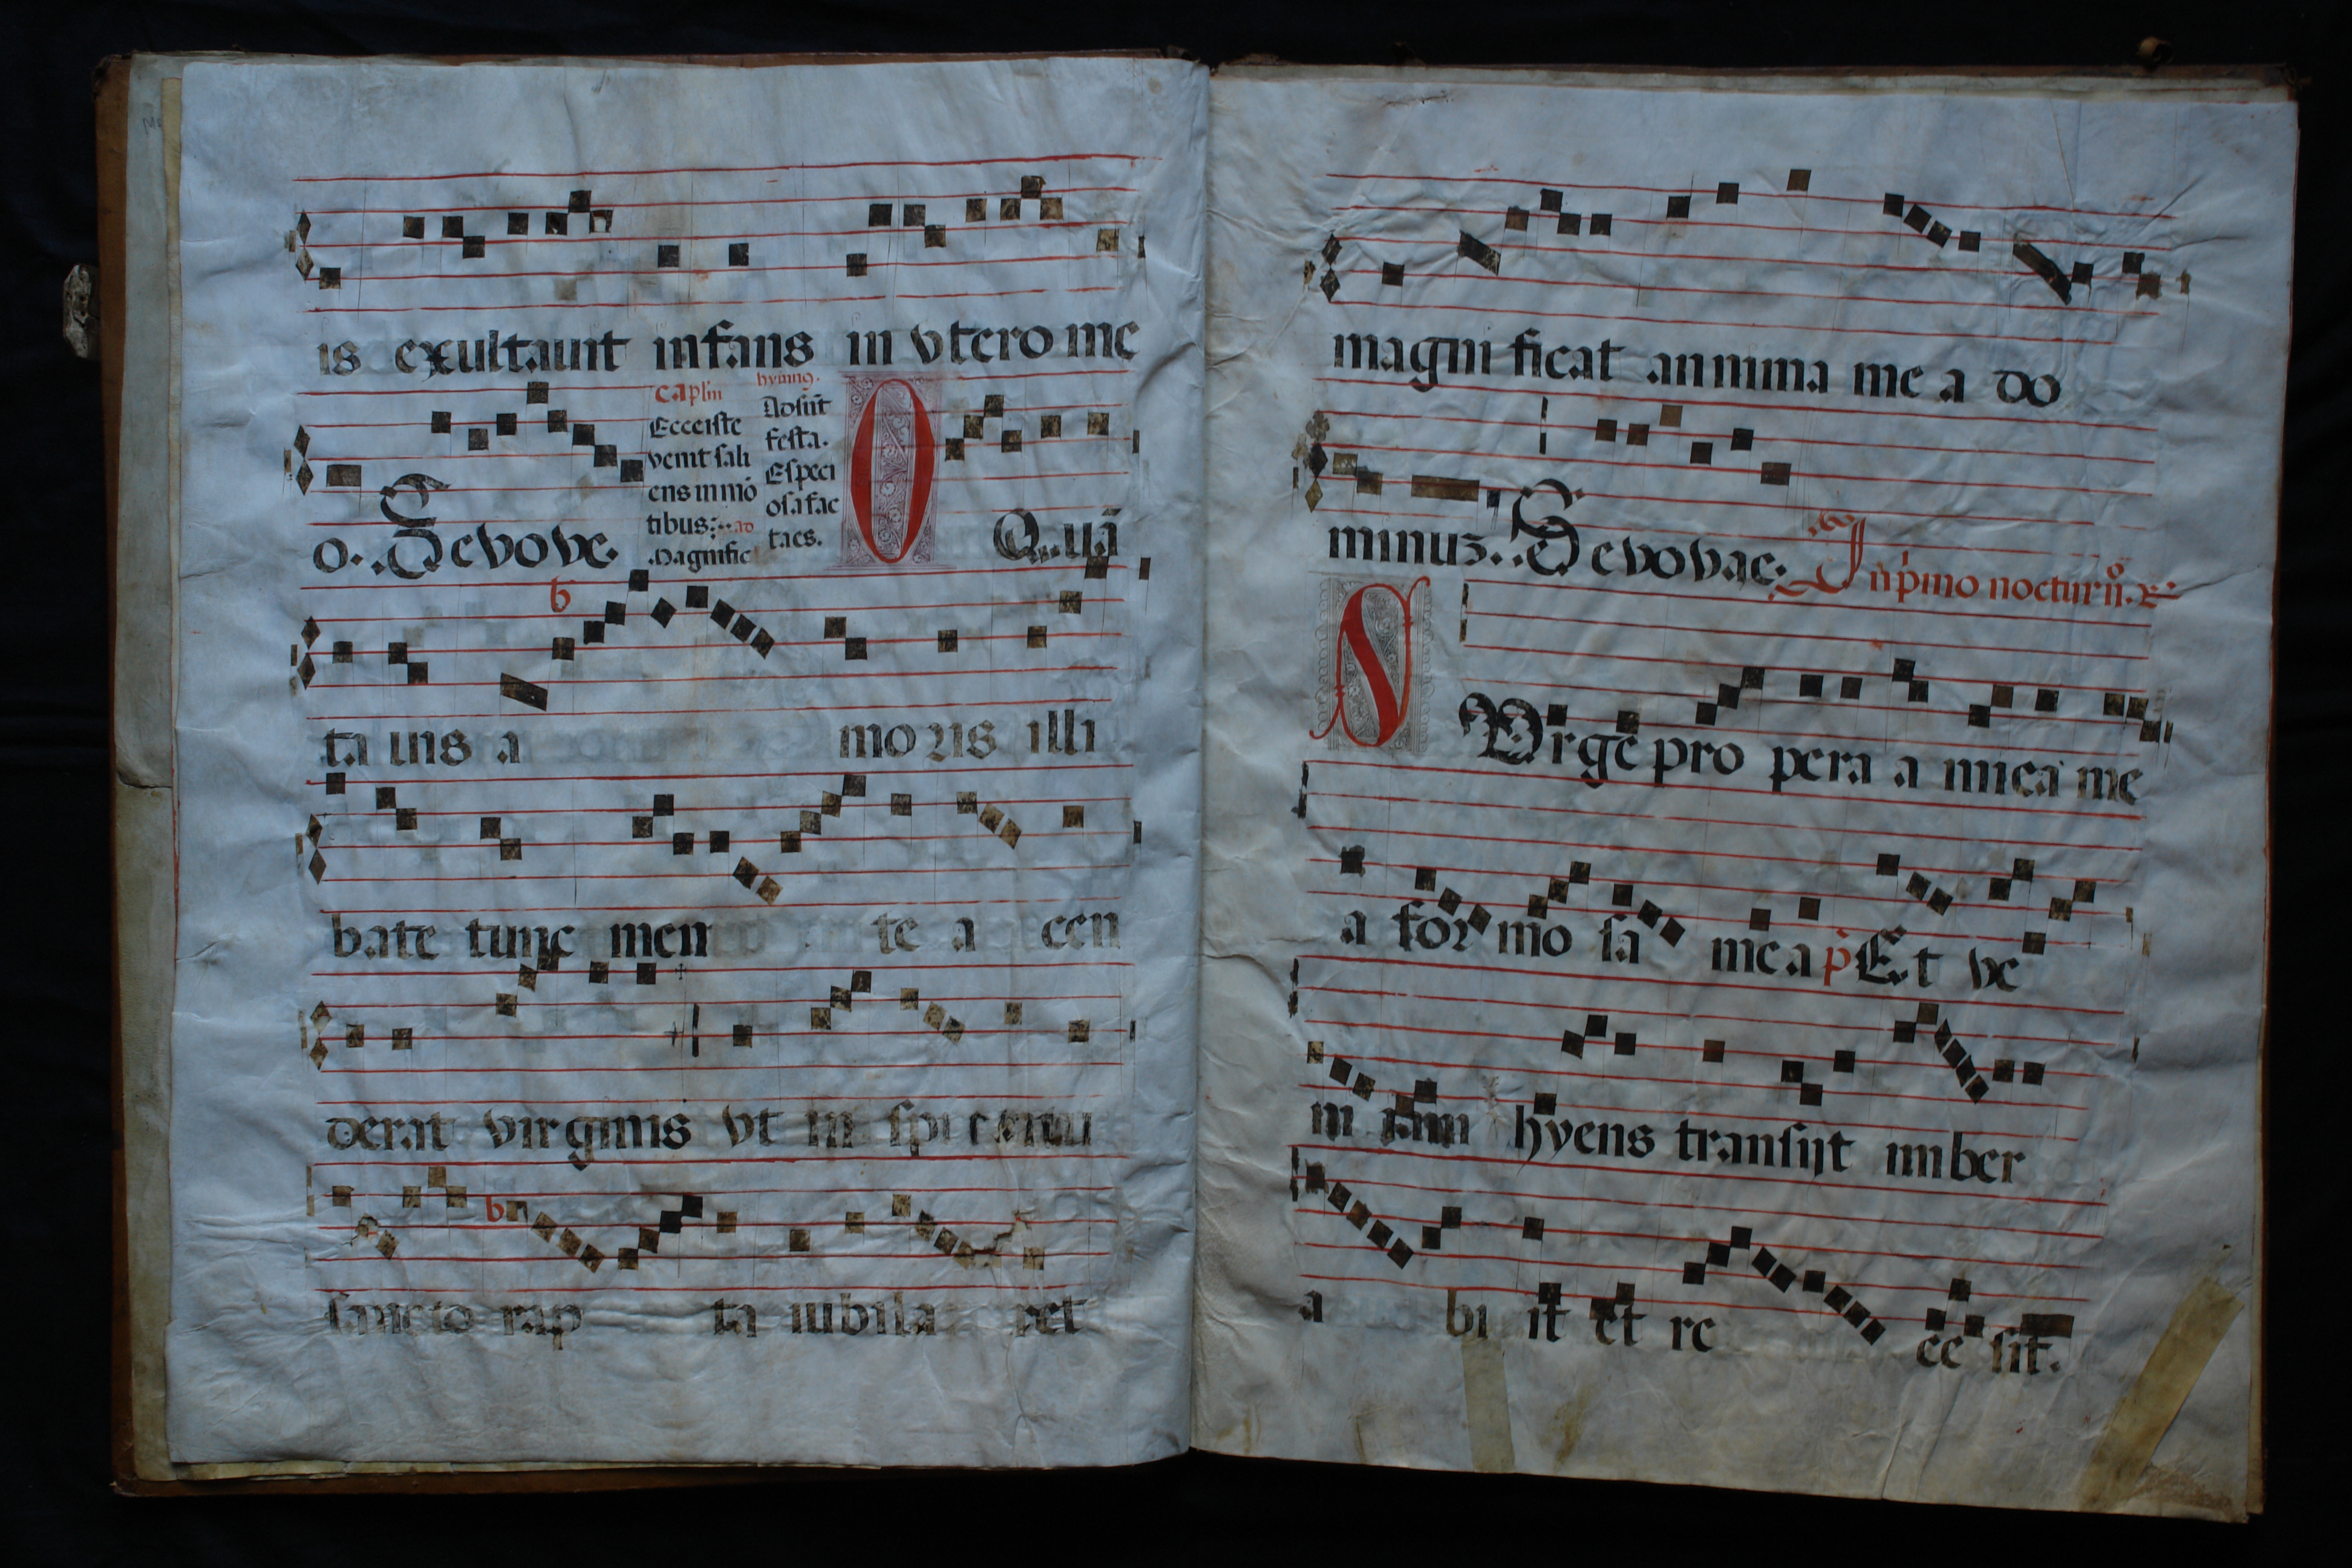 is exultauit infans in vtero me
o. Sevove.
caplm
Ecce iste
venit sali
ens in mō
tibus: ad
Magnific
hymnꝯ.
Adsūt
festa.
Especi
osa fac
taes.
O Quā
b
ta uis a moris illi
bate tunc men te a cen
derat virginis vt in
b
sancto rap ta iubila ret
magni ficat annima me a do
minus. Sevovae. In pͥmo nocturͦ.
SVrge pro pera a mica me
a for mo sa me a Et ve
ni iam hyens transijt imber
a bi it et re ce sit.